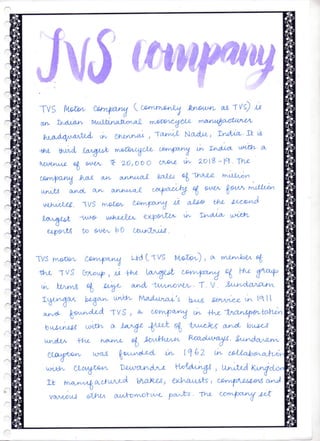 TVS company
TVS Motor Company (commonly known as TVS) is
an Indian Multinational motorcycle manufacturer
headquarted in Chennai, Tamil Nadu, India It is
the third largest motorcycle company in India with a
revenue of over ₹ 20,000 crore in 2018-19. The
company has an annual sales of three million
units and an annual capacity of over four million
vehicles. TVS motor Company is also the second
largest two wheeler exporter in India with
exports to over 60 Countries.
TVS motor Company Ltd (TVS Motor), a member of
the TVS Group, is the largest company of the group
in terms of size and turnover. T. V. Sundaram
Iyengar began with Madurai's bus service in 1911
and founded TVS, a company in the transportation
business with a large fleet of trucks and buses
under the name of Southern Roadways Sundaram
Clayton was founded in 1962 in collaboration
with Clayton Dewandre Holdings, United Kingdom
It manufactured brakes, exhausts, compressors and
various other automotive parts. The company set